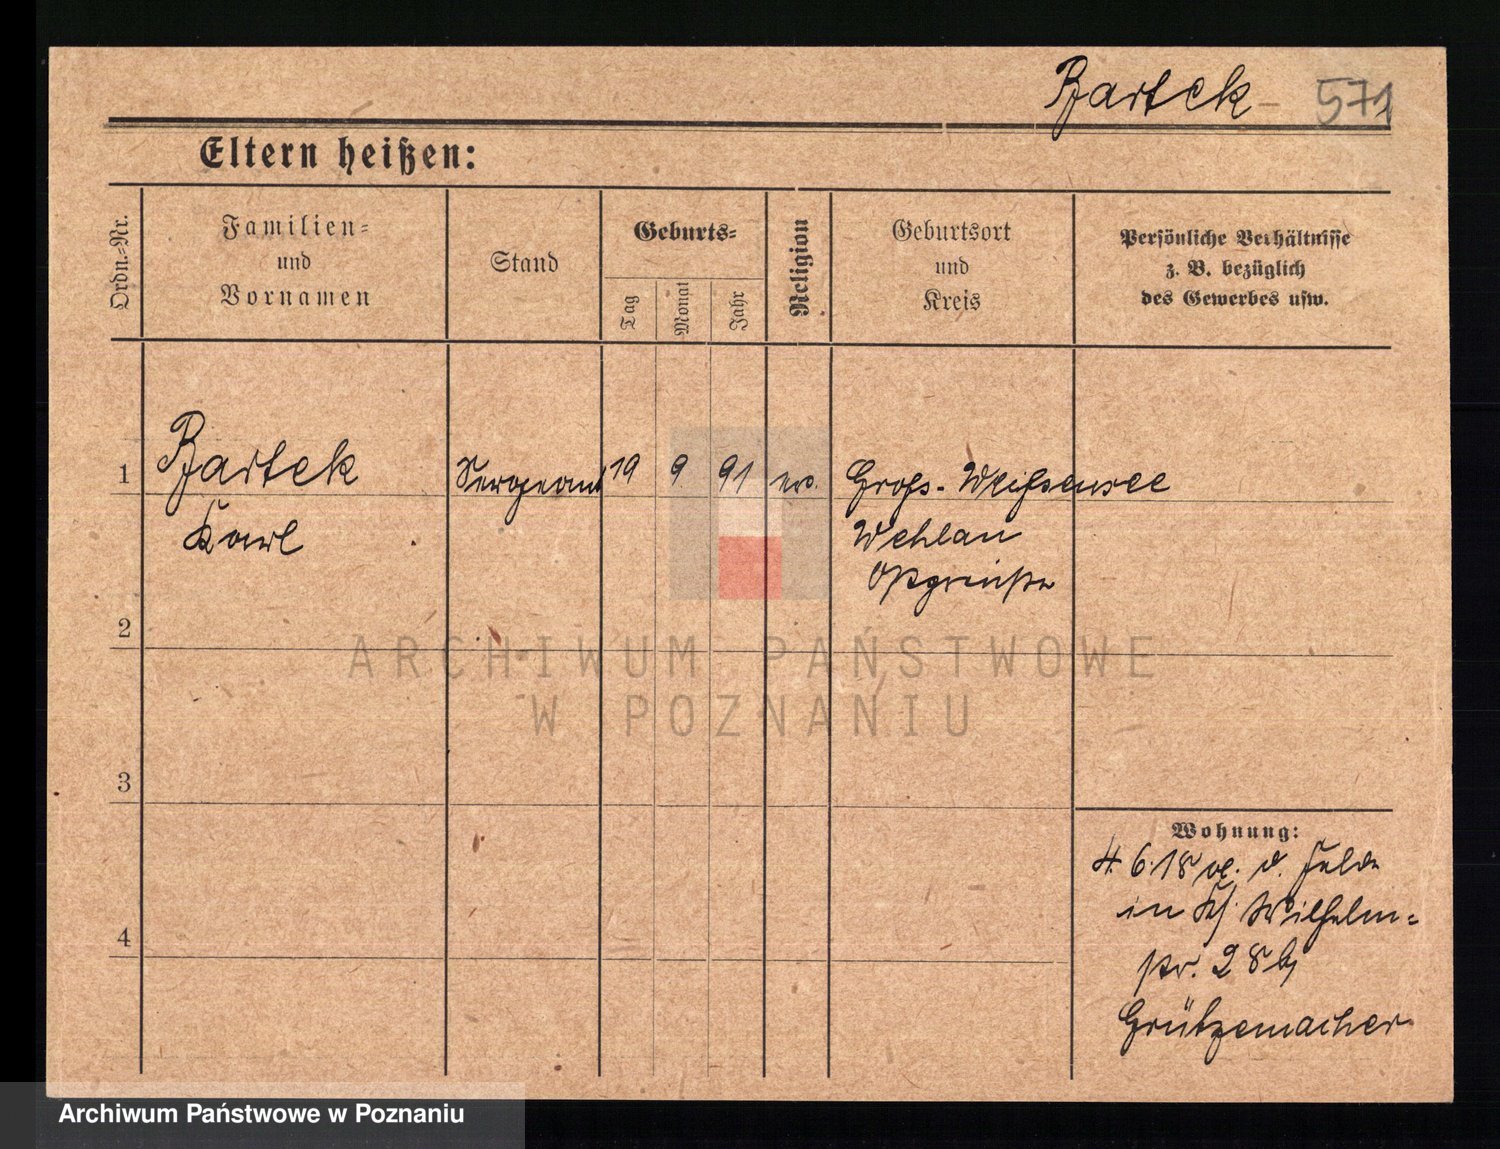 Bartek 571
Eltern heißen:
Ordn.-Nr.
Familien-
und
Vornamen
Stand
Geburts-
Tag
Monat
Jahr
Religion
Geburtsort
und
Kreis
Persönliche Verhältnisse
z. B. bezüglich
des Gewerbes usw.
1 Bartek Sergeant 19 9 91 ev. Groß-Weißensee
Karl Wehlau
Ostpreußen
2
3
4
Wohnung:
4. 6. 18 v. d. Felde
in Kf. Wilhelm-
str. 28 b/
Grützemacher
ARCHIWUM PAŃSTWOWE
W POZNANIU
Archiwum Państwowe w Poznaniu